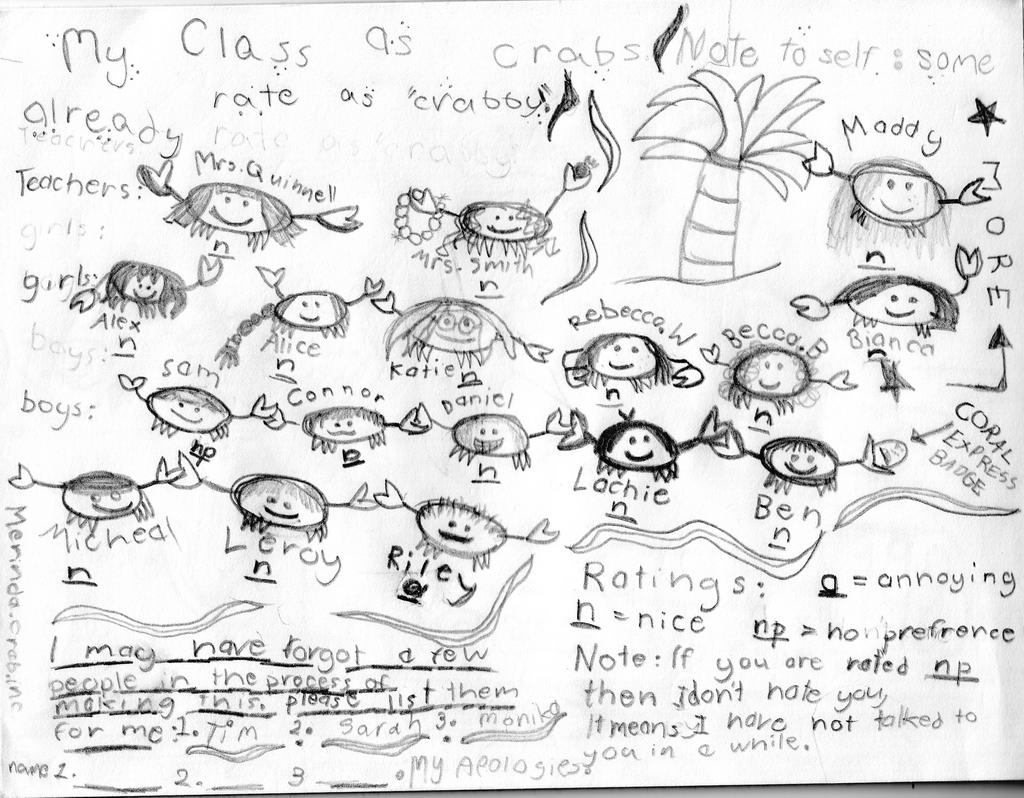 My Class as crabs/Note to self: some
already rate as "crabby"!
Teachers
rate as "crabby"
Teachers:
Mrs. Quinnell
n
Mrs. Smith
n
Maddy
n
MORE
girls:
garls:
Alex
n
Alice
n
Katie
n
Rebecca.W
n
Becca.B
n
Bianca
n
boys:
boys:
Sam
np
Connor
n
Daniel
n
Lachie
n
Ben
n
CORAL
EXPRESS
BADGE
Micheal
n
Leroy
n
Riley
Meminda.crab.inc
Ratings: a = annoying
n = nice np = no prefrence
Note: If you are rated np
then I don't hate you,
It means I have not talked to
you in a while.
I may have forgot a few
people in the process of
making this. please list them
for me: 1. Tim 2. Sarah 3. Monika
name 1. 2. 3 . My Apologies.